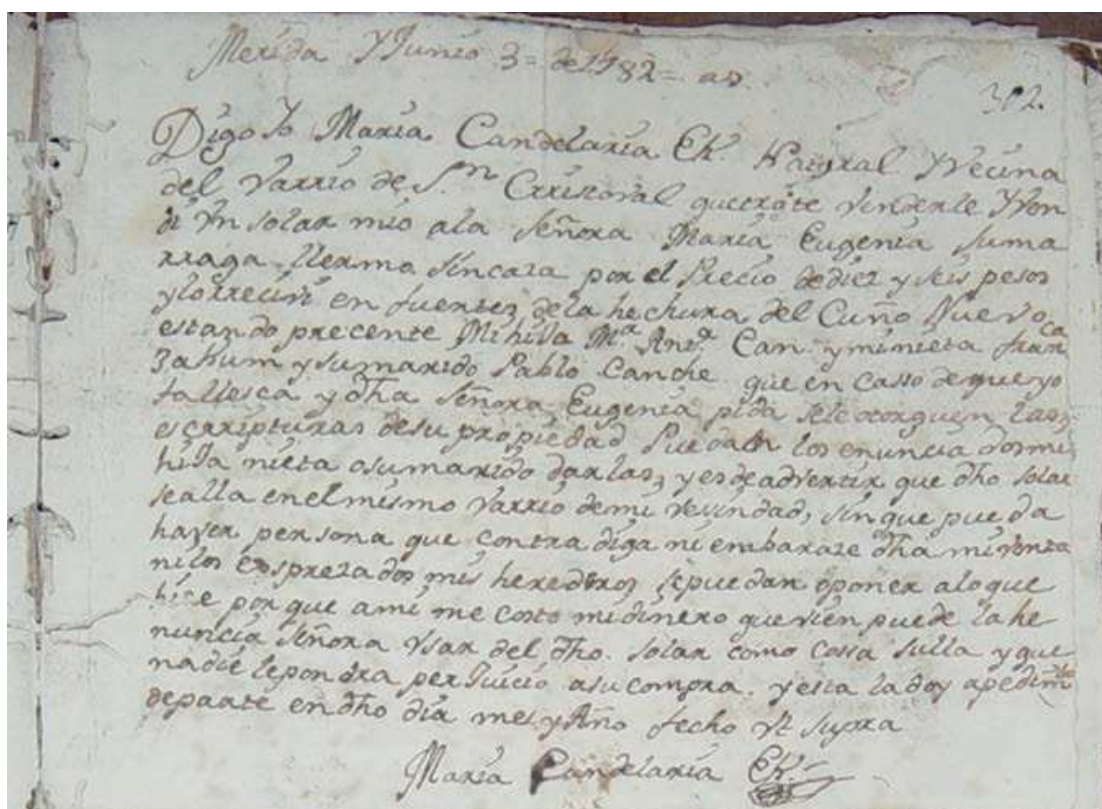 Merida Y Junio 3 = de 1782 = as.
302.
Digo Yo Maria Candelaria Ek. Natural Y Vecina
del Varrio de S.n Cristoval que trate Venderle Y Von
di Vn solar mio ala Señora Maria Eugenia suma
rraga Yermo sin casa por el Precio de diez y seis pesos
y lo rrecivi en fuertes de la hechura del Cuño Nuevo
estando precente Mi hija M.a Ant.a Can y mi nieta Fran.ca
Zakum y su marido Pablo Canche que en casso de que yo
fallesca y dha Señora Eugenia pida sele otorguen las
escaripturas desu propiedad Puedan los enunciados mi
hija nieta o su marido darlas, y es de advertir que dho solar
sealla en el mismo Varrio de mi Vesindad, sin que pueda
hayer persona que contra diga ni embaraze dha mi venta
ni los espresados mis herederos se puedan oponer alo que
hise por que ami me costo mi dinero que vien puede la he
nuncia Señora Vsar del dho. solar como cossa sulla y que
nadie le pondra perjuicio asu compra. y esta la doy a pedim.to
de parte en dho dia mes y Año fecho Vt supra
Maria Candelaria Ek.